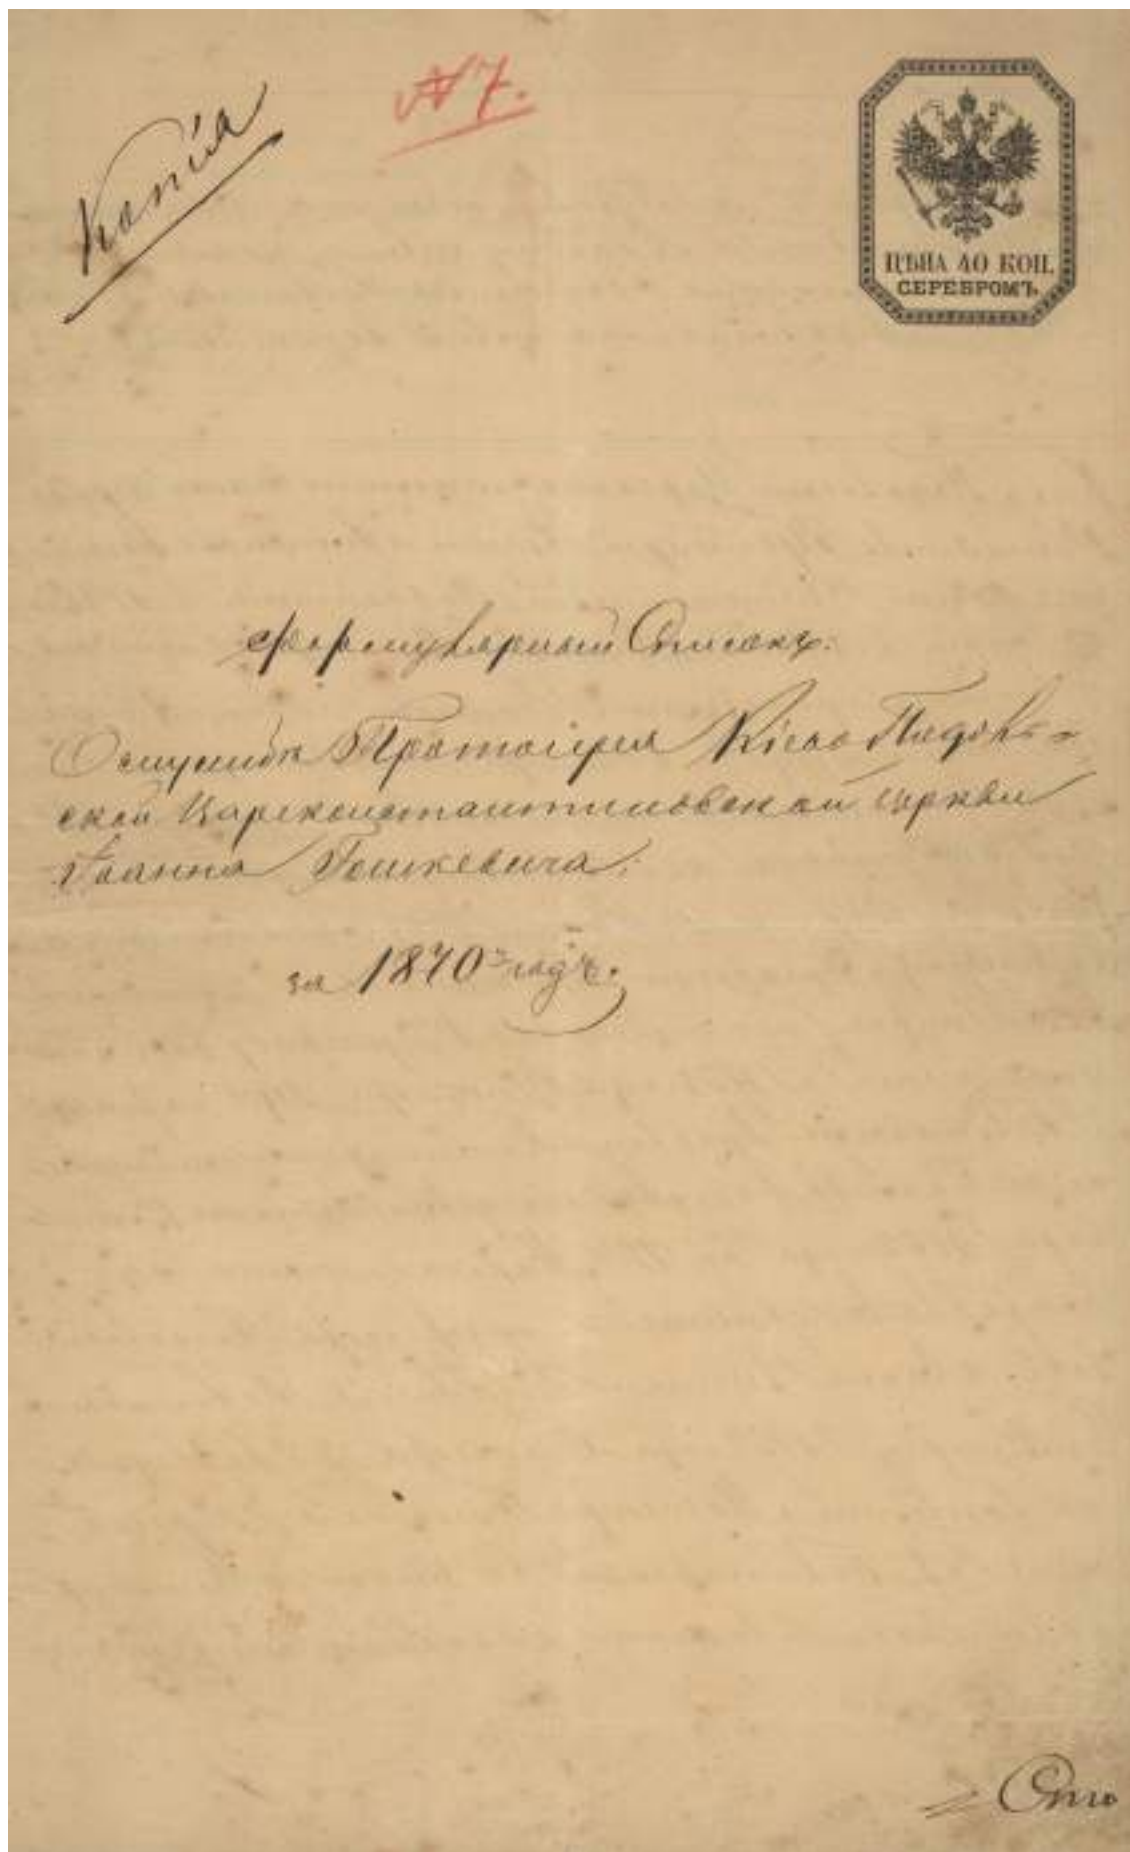 Копія
№ 7.
ЦѢНА 40 КОП.
СЕРЕБРОМЪ.
Формулярный Списокъ.
О службѣ Протоіерея Кіево Подоль=
ской Цареконстантиновской церкви
Іоанна Бошкевича.
за 1870й годъ.